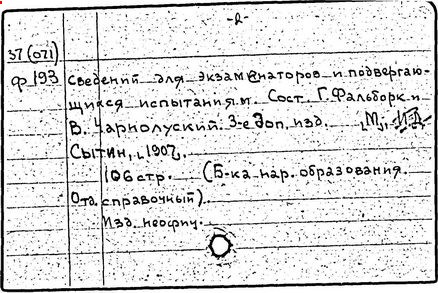 -2-
37(071)
Ф 193 сведений для экзаменаторов и подвергаю-
щихся испытаниям. Сост. Г. Фальборк и
В. Чарнолуский. 3-е доп. изд. [М], И.Д.
Сытин, [1907].
106 стр. (Б-ка нар. образования.
Отд. справочный).
Изд. неофиц.